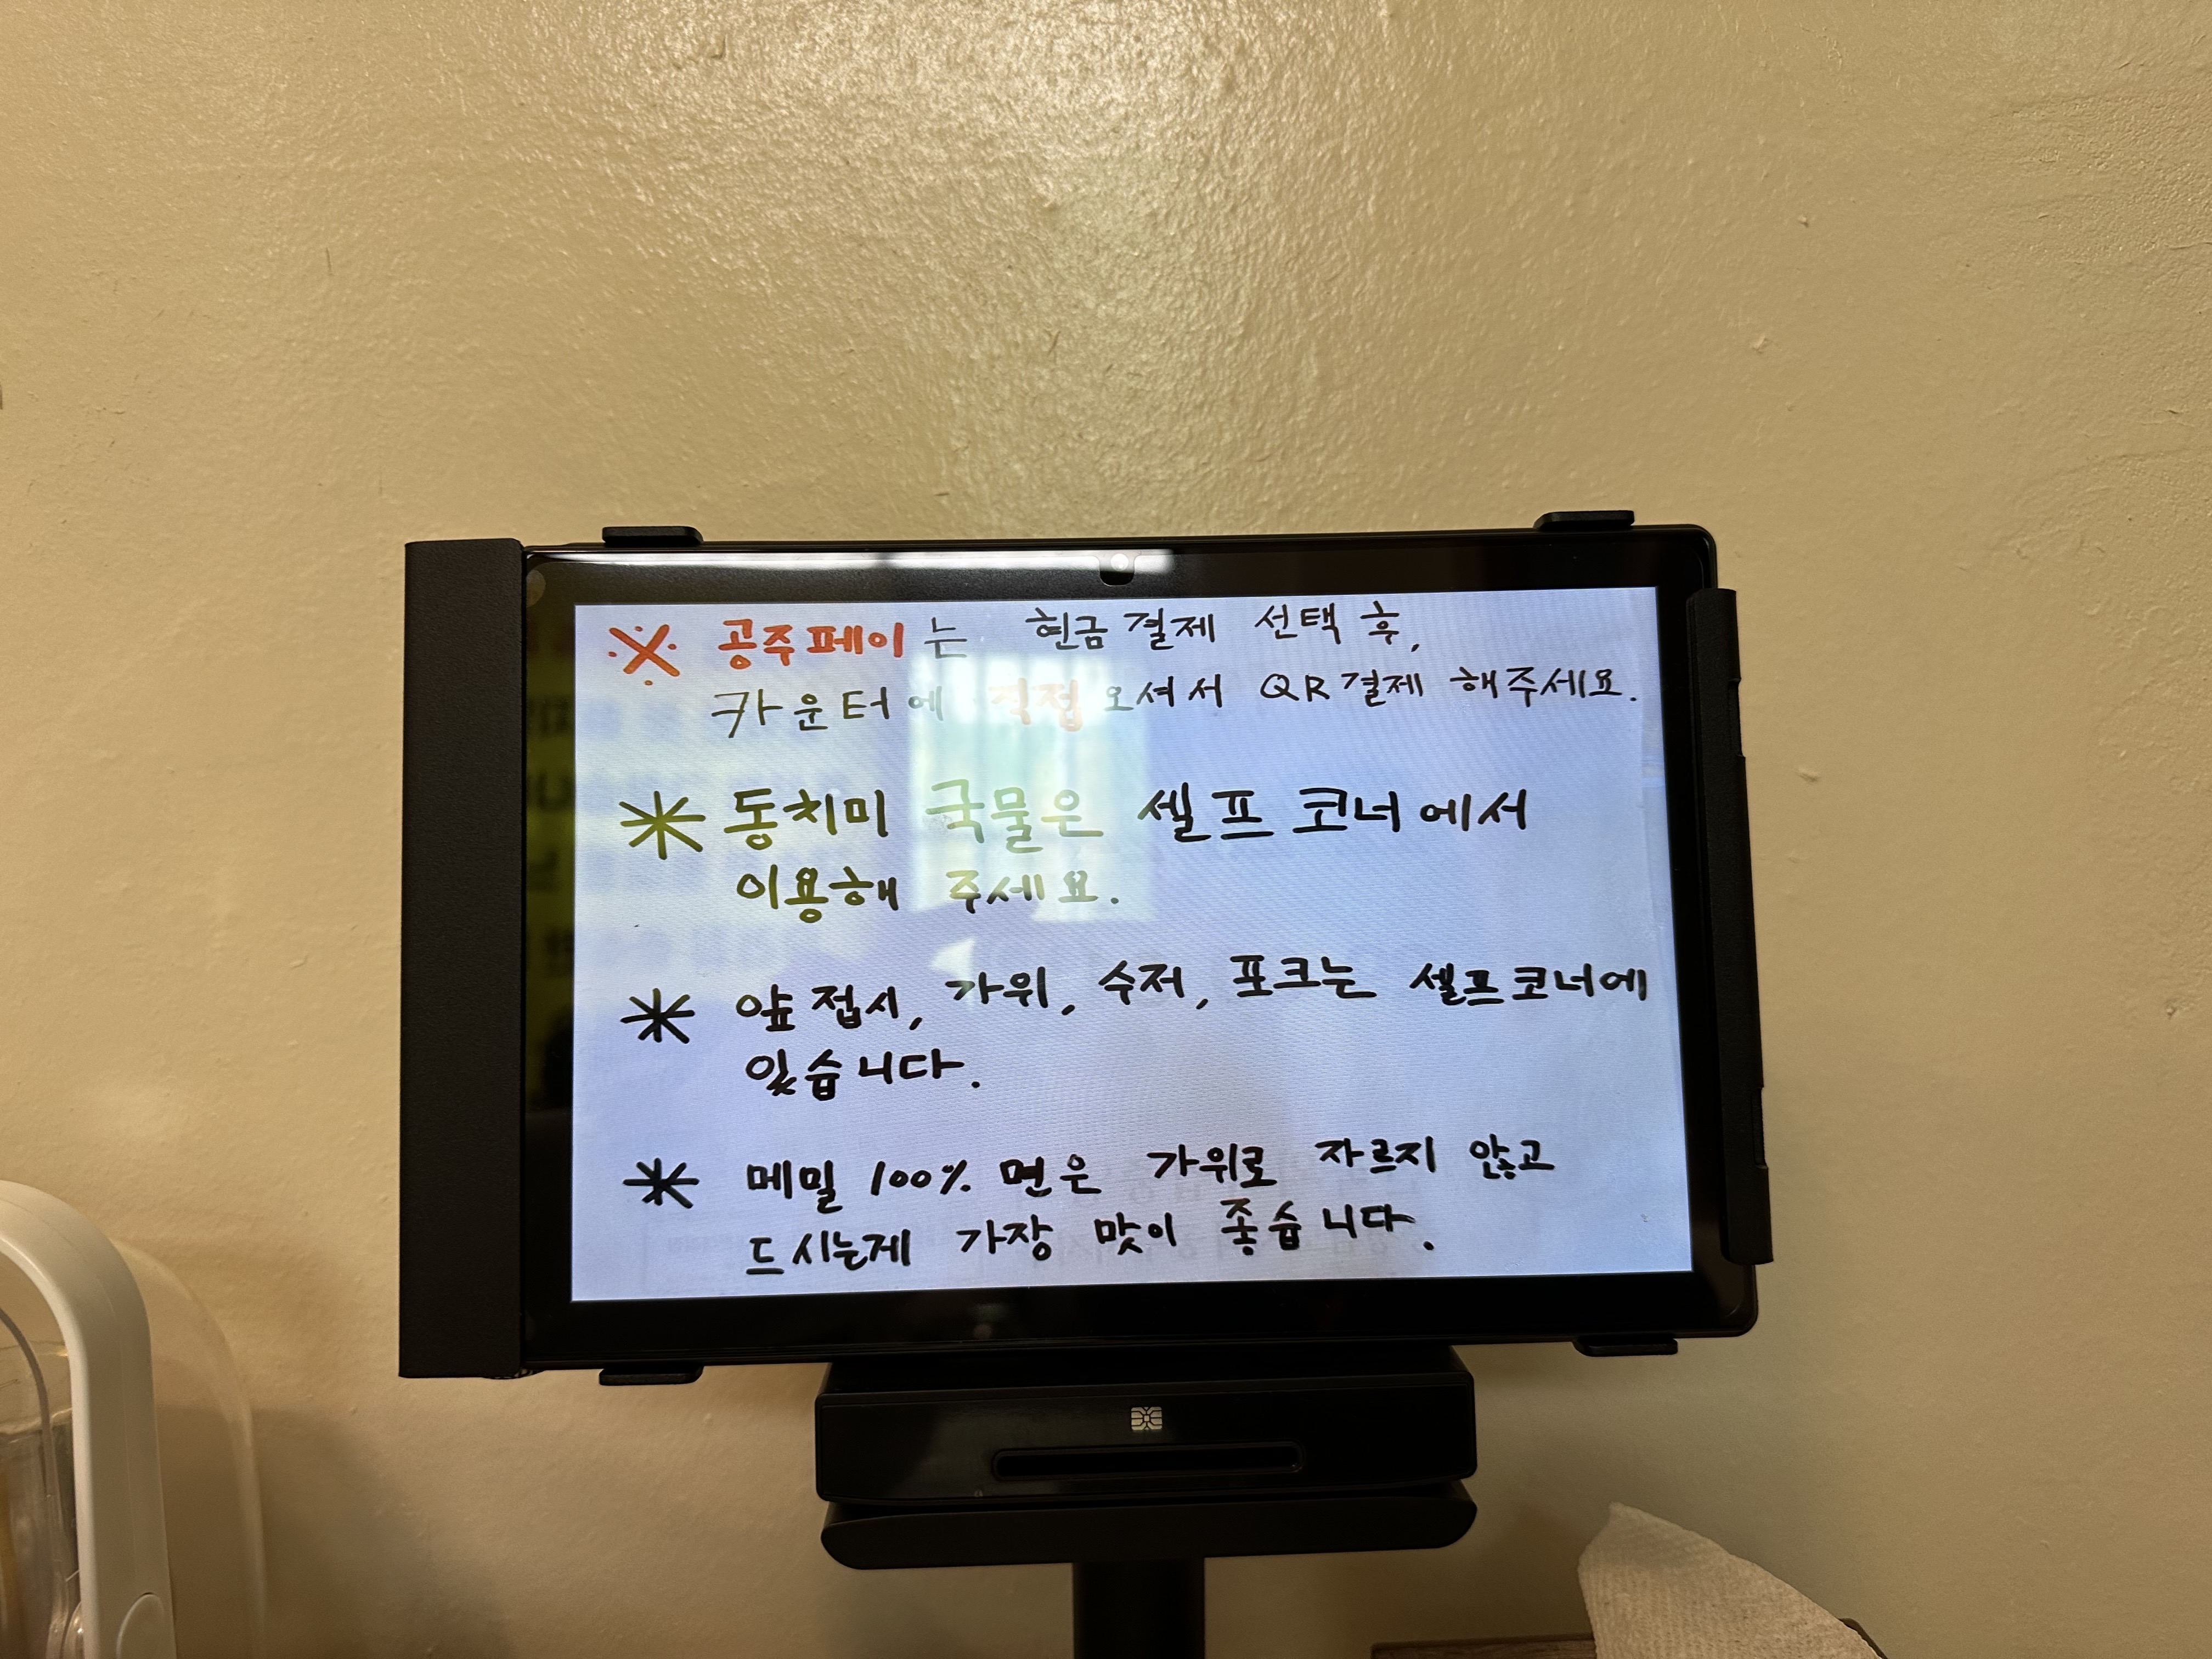 ※ 공주페이는 현금결제 선택 후,
카운터에 직접 오셔서 QR결제 해주세요.
* 동치미 국물은 셀프 코너에서
이용해 주세요.
* 앞접시, 가위, 수저, 포크는 셀프코너에
있습니다.
* 메밀 100% 면은 가위로 자르지 않고
드시는게 가장 맛이 좋습니다.